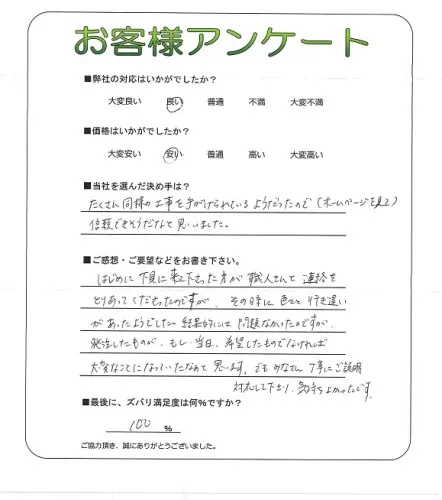 お客様アンケート
■弊社の対応はいかがでしたか?
大変良い 良い 普通 不満 大変不満
■価格はいかがでしたか?
大変安い 安い 普通 高い 大変高い
■当社を選んだ決め手は?
たくさん同様の工事を手がけられているようだったので(ホームページを見て)
信頼できそうだなと思いました。
■ご感想・ご要望などをお書き下さい。
はじめに下見に来て下さった方が職人さんと連絡を
とりあってくださったのですが、その時に 行き違い
があったようでした。結果的には問題なかったのですが、
発注したものが、もし、当日、希望したものでなければ
大変なことになっていたなあと思います。でもみなさん丁寧にご説明
対応して下さり、気持ちよかったです。
■最後に、ズバリ満足度は何%ですか?
100 %
ご協力頂き、誠にありがとうございました。